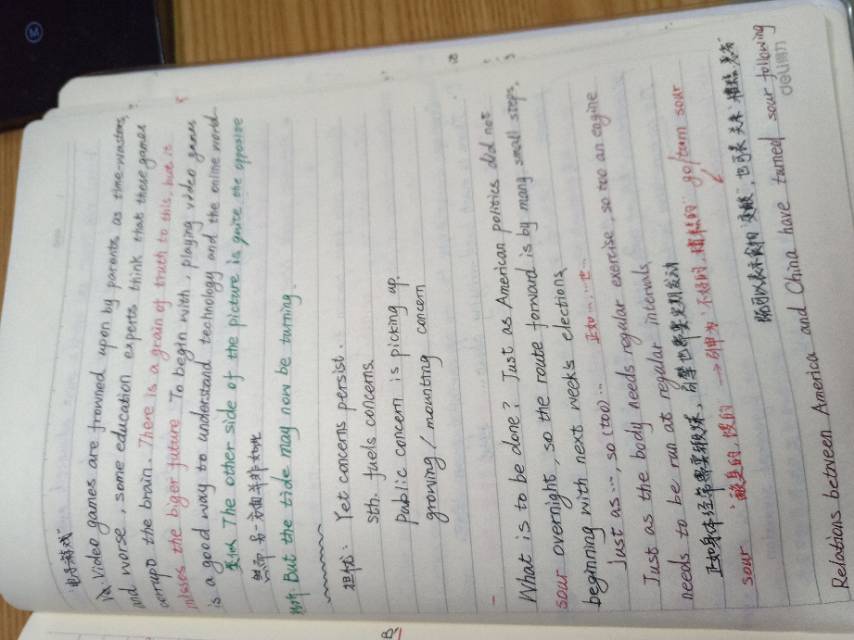 "电子游戏"
Video games are frowned upon by parents as time-wasters,
and worse, some education experts think that these games
corrupt the brain. There is a grain of truth to this, but it
misses the biger future To begin with, playing video games
is a good way to understand technology and the online world.
The other side of the picture is quite the opposite
然而另一方面并非如此
But the tide may now be turning.
担忧: Yet concerns persist.
sth. fuels concerns.
public concern is picking up.
growing / mounting concern
What is to be done? Just as American politics did not
sour overnight, so the route forward is by many small steps,
beginning with next week's elections
Just as ..., so (too) ... 正如...,...也...
Just as the body needs regular exercise, so too an engine
needs to be run at regular intervals
正如身体经常需要锻炼,引擎也需要定期发动
sour "酸臭的,馊的 → 引申为"不好的,糟糕的" go/turn sour
既可以表示食物"变酸",也可表关系"
Relations between America and China have turned sour following
deli